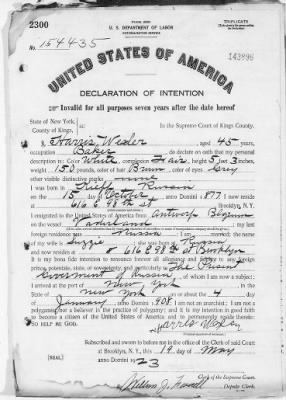 2300
FORM 2203
U. S. DEPARTMENT OF LABOR
NATURALIZATION SERVICE
TRIPLICATE
No. 154435
143896
UNITED STATES OF AMERICA
DECLARATION OF INTENTION
Invalid for all purposes seven years after the date hereof
State of New York,
County of Kings,
In the Supreme Court of Kings County.
I, Harris Wexler, aged 45 years,
occupation Baker, do declare on oath that my personal
description is: Color White, complexion Fair, height 5 feet 3 inches,
weight 150 pounds, color of hair Brown, color of eyes Grey
other visible distinctive marks
I was born in Kieff Russia
on the 15 day of October, anno Domini 1877; I now reside
at 616 E 98th St Brooklyn, N.Y.
I emigrated to the United States of America from Antwerp Belgium
on the vessel Vaderland; my last
foreign residence was Russia; the name
of my wife is Lizzie; she was born in Russia
and now resides at 616 E 98 St Brooklyn
It is my bona fide intention to renounce forever all allegiance and fidelity to any foreign
prince, potentate, state, or sovereignty, and particularly to The Present
Government of Russia, of whom I am now a subject;
I arrived at the port of New York, in the
State of New York, on or about the 4 day
of January, anno Domini 1908; I am not an anarchist; I am not a
polygamist nor a believer in the practice of polygamy; and it is my intention in good faith
to become a citizen of the United States of America and to permanently reside therein:
SO HELP ME GOD.
Harris Wexler
Subscribed and sworn to before me in the office of the Clerk of said Court
at Brooklyn, N. Y., this 19 day of May
anno Domini 1923
[SEAL]
Clerk of the Supreme Court.
Deputy Clerk.